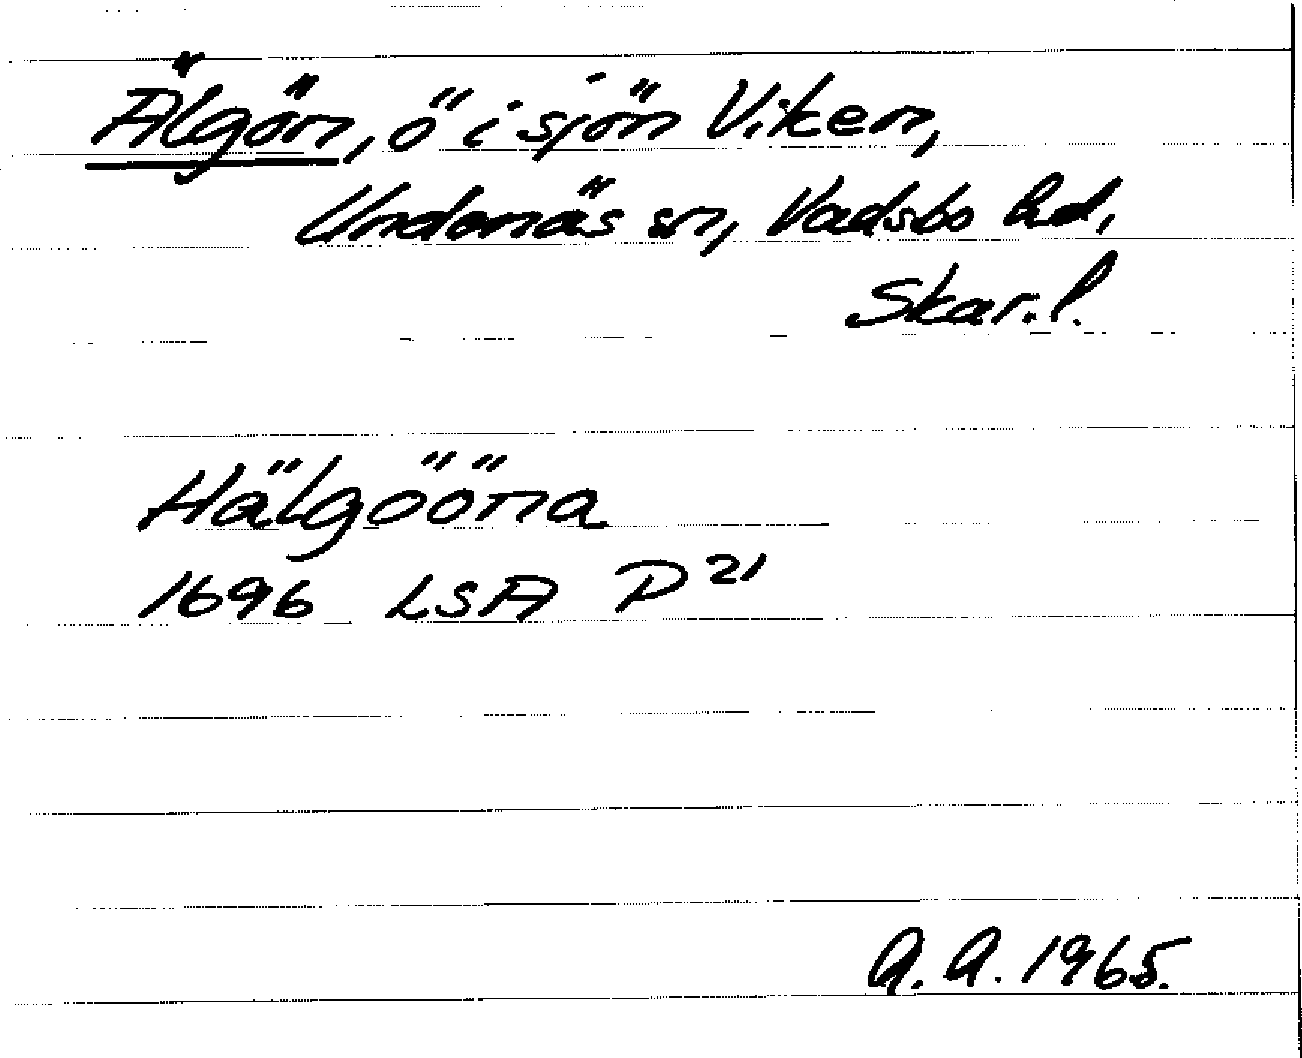 Älgön, ö i sjön Viken,
Undenäs sn, Vadsbo hd,
Skar. l.
Hälgööna
1696 LSA P 21
A. A. 1965.